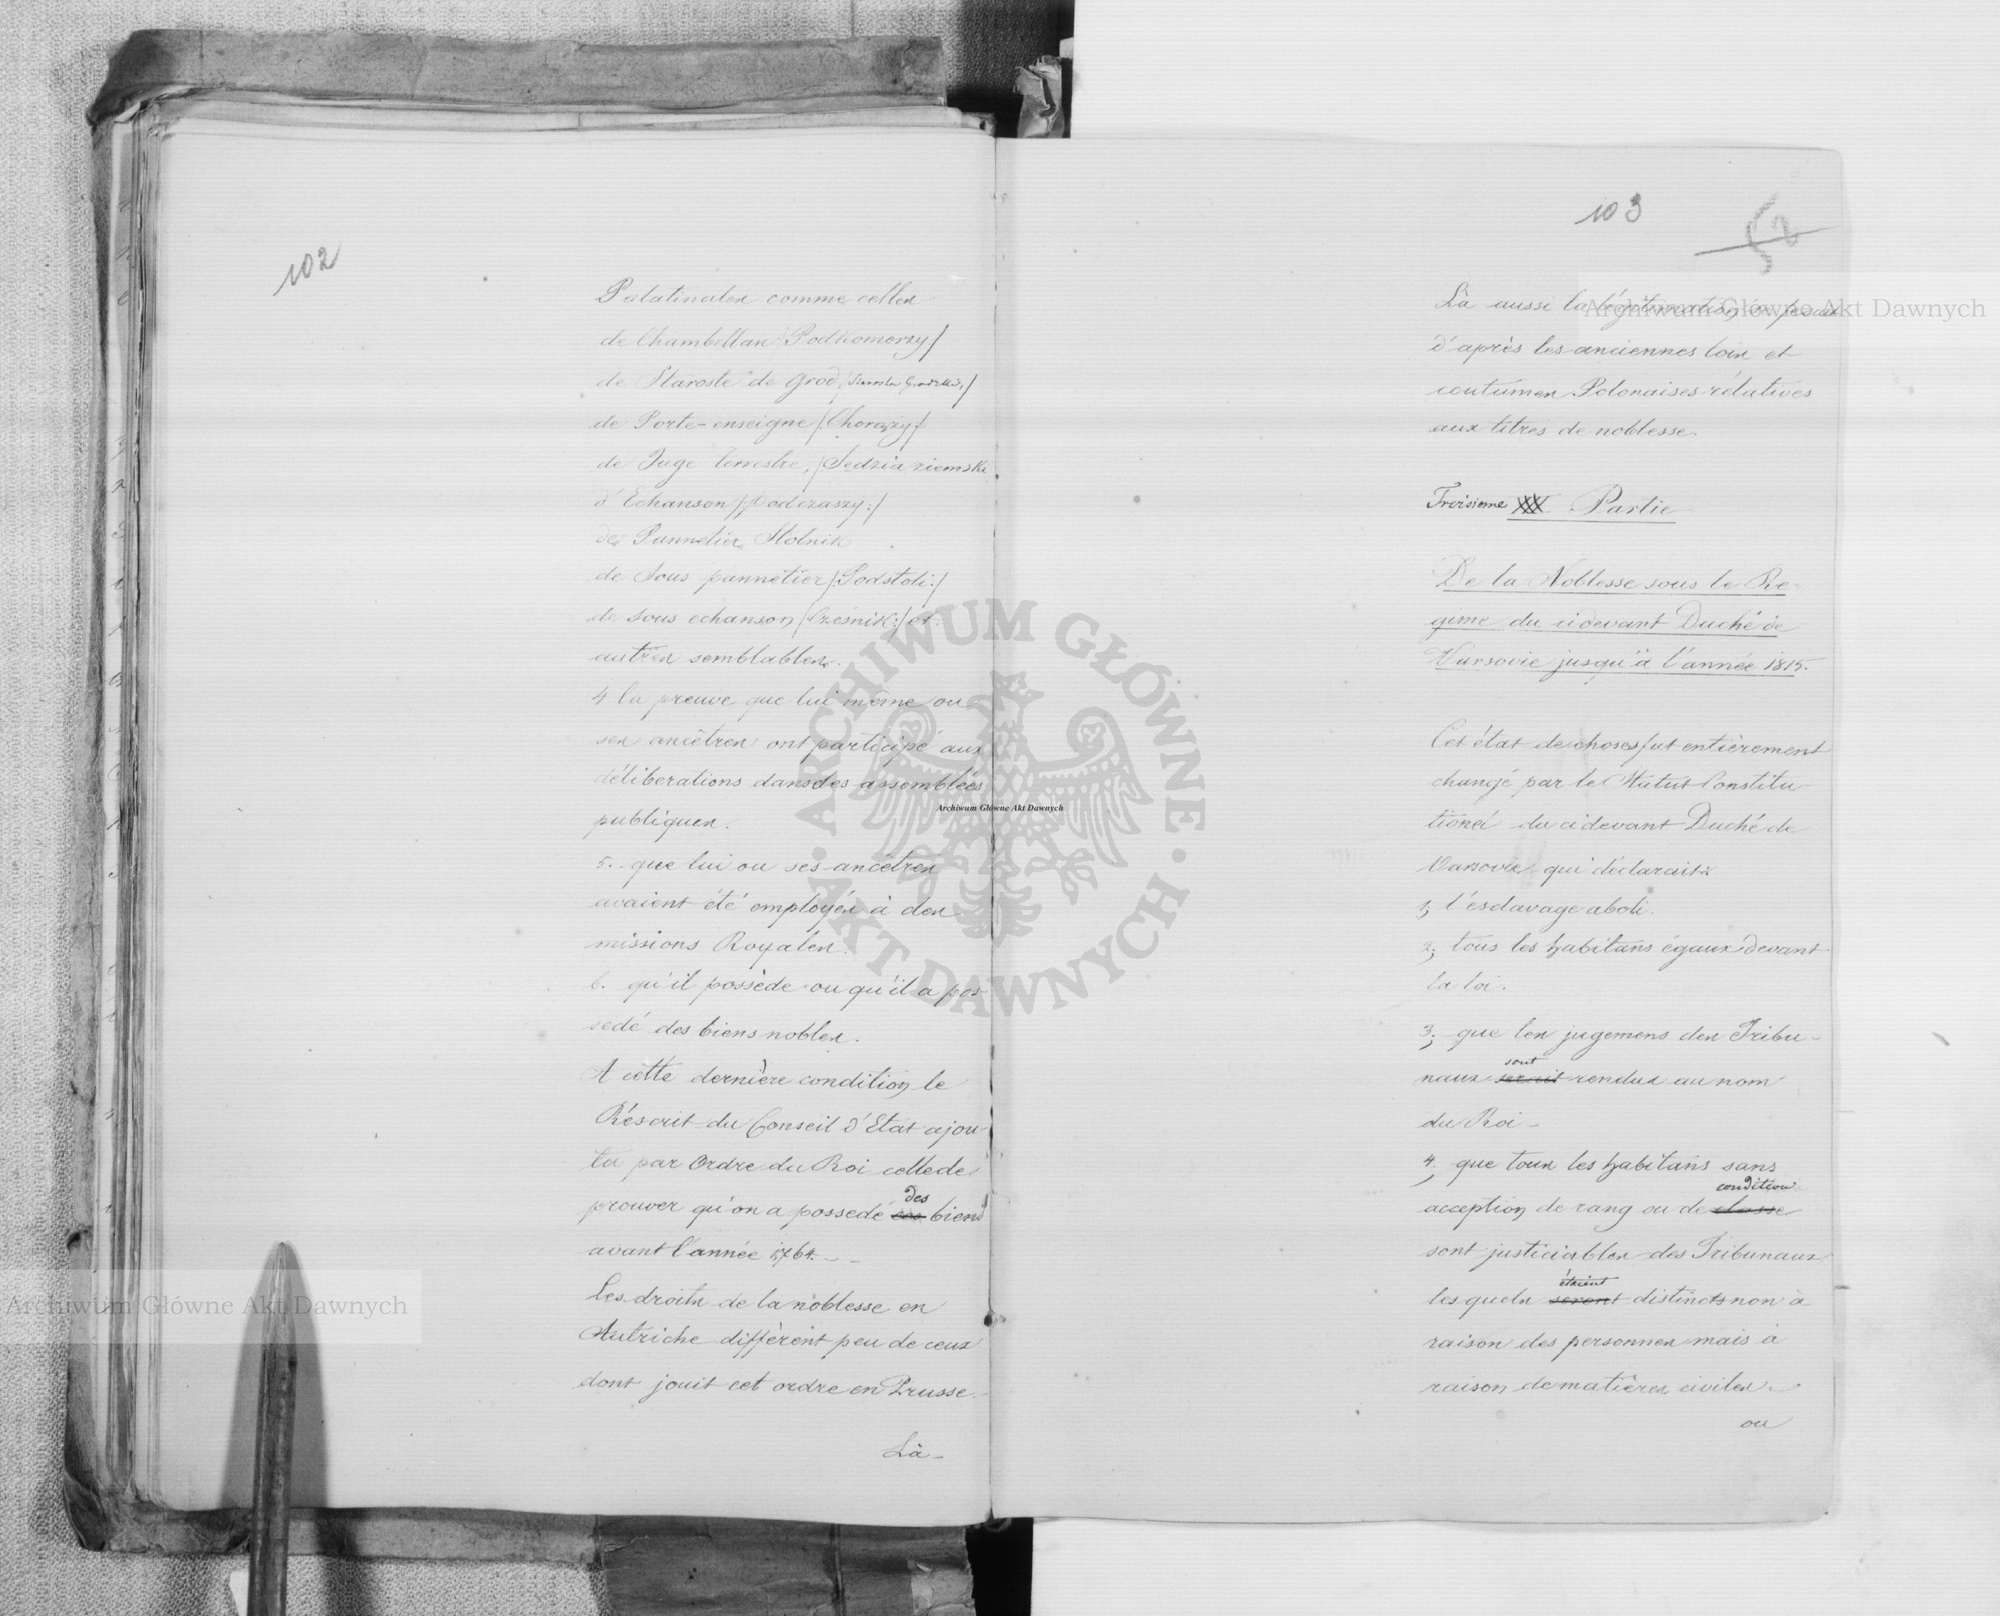 102
Palatinales comme celles
de Chambellan /Podkomorzy/
de Staroste de Grod /Starosta Grodzki/
de Porte-enseigne /Chorąży/
de Juge terrestre, /Sędzia ziemski
d'Echanson /Podczaszy:/
de Pannetier Stolnik
de Sous pannetier /:Podstoli:/
de sous echanson /Cześnik:/ et
autres semblables.
4 la preuve que lui même ou
ses ancêtres ont participé aux
déliberations dans des assemblées
publiques.
5. que lui ou ses ancêtres
avaient été employés à des
missions Royales.
6. qu'il possède ou qu'il a pos-
sedé des biens nobles.
A cette dernière condition le
Réscrit du Conseil d'Etat ajou-
ta par Ordre du Roi celle de
des
prouver qu'on a possedé ces biens
avant l'année 1764. - -
Les droits de la noblesse en
Autriche diffèrent peu de ceux
dont jouit cet ordre en Prusse.-
Là-
103
52
Là aussi la légitimation se
d'après les anciennes loix et
coutumes Polonaises rélatives
aux titres de noblesse.
Troisieme Partie
De la Noblesse sous le Re-
gime du cidevant Duché de
Varsovie jusqu'à l'année 1815.
Cet état de choses fut entièrement
changé par le Statut Constitu-
tionel du cidevant Duché de
Varsovie qui déclarait:
1, l'esclavage aboli.
2, tous les habitans égaux devant
la loi.
3, que les jugemens des Tribu-
sont
naux serait rendus au nom
du Roi -
4. que tous les habitans sans
condition
acception de rang ou de classe
sont justiciables des Tribunaux
étaient
lesquels seront distincts non à
raison des personnes mais à
raison de matières civiles -
ou
Archiwum Główne Akt Dawnych
Archiwum Główne Akt Dawnych
Archiwum Główne Akt Dawnych
ARCHIWUM GŁÓWNE · AKT DAWNYCH ·